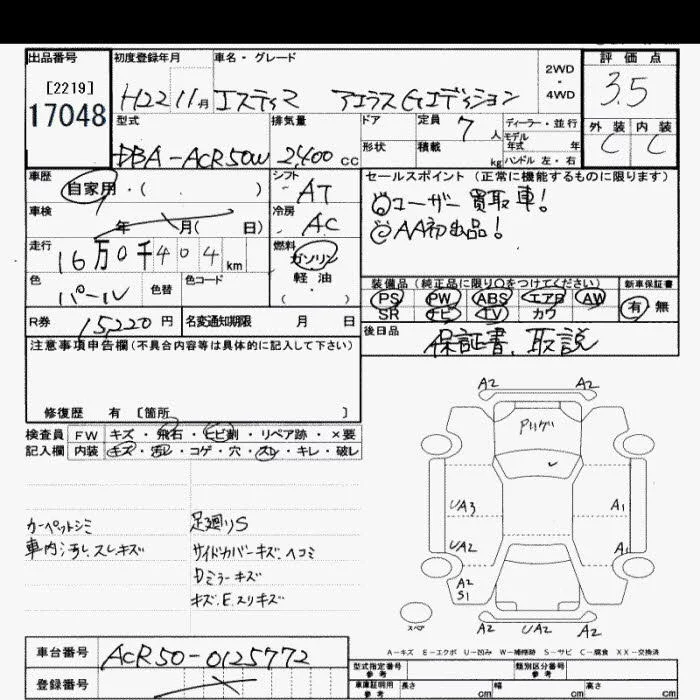 出品番号 初度登録年月 車名・グレード 2WD・4WD 評価点
[2219]
17048 H22 11月 エスティマ アエラス Gエディション 3.5
型式 排気量 ドア 定員 7人 ディーラー・並行 外装 内装
形状 積載 kg モデル年式 年
DBA-ACR50W 2,400cc ハンドル 左・右 C C
車歴 シフト セールスポイント (正常に機能するものに限ります)
自家用・( ) AT ◎ユーザー買取車!
車検 冷房 ◎AA初出品!
年 月( 日) AC
走行 燃料
16万0千404km ガソリン
軽油
( ・ )
色 色替 色コード 装備品 (純正品に限り○をつけてください) 新車保証書
パール PS PW ABS エアB AW 有 無
SR ナビ TV カワ
R券 15,220円 名変通知期限 月 日 後日品
保証書、取説
注意事項申告欄 (不具合内容等は具体的に記入して下さい)
修復歴 有 〔箇所 〕
検査員 FW キズ・飛石・ヒビ割・リペア跡・×要
記入欄 内装 キズ・汚レ・コゲ・穴・スレ・キレ・破レ
A2 A2
UA3 A1
UA2 A
A2
S1
スペア A2 UA2 A2
カーペットシミ 足廻りS
車内汚れ、スレキズ サイドカバーキズ、ヘコミ
Dミラーキズ
キズ、E、スリキズ
A-キズ E-エクボ U-凹み W-補修跡 S-サビ C-腐食 XX-交換済
車台番号 ACR50-0125772 型式指定番号 参考 類別区分番号 参考
登録番号 車庫証明用 参考 長さ cm 幅 cm 高さ cm